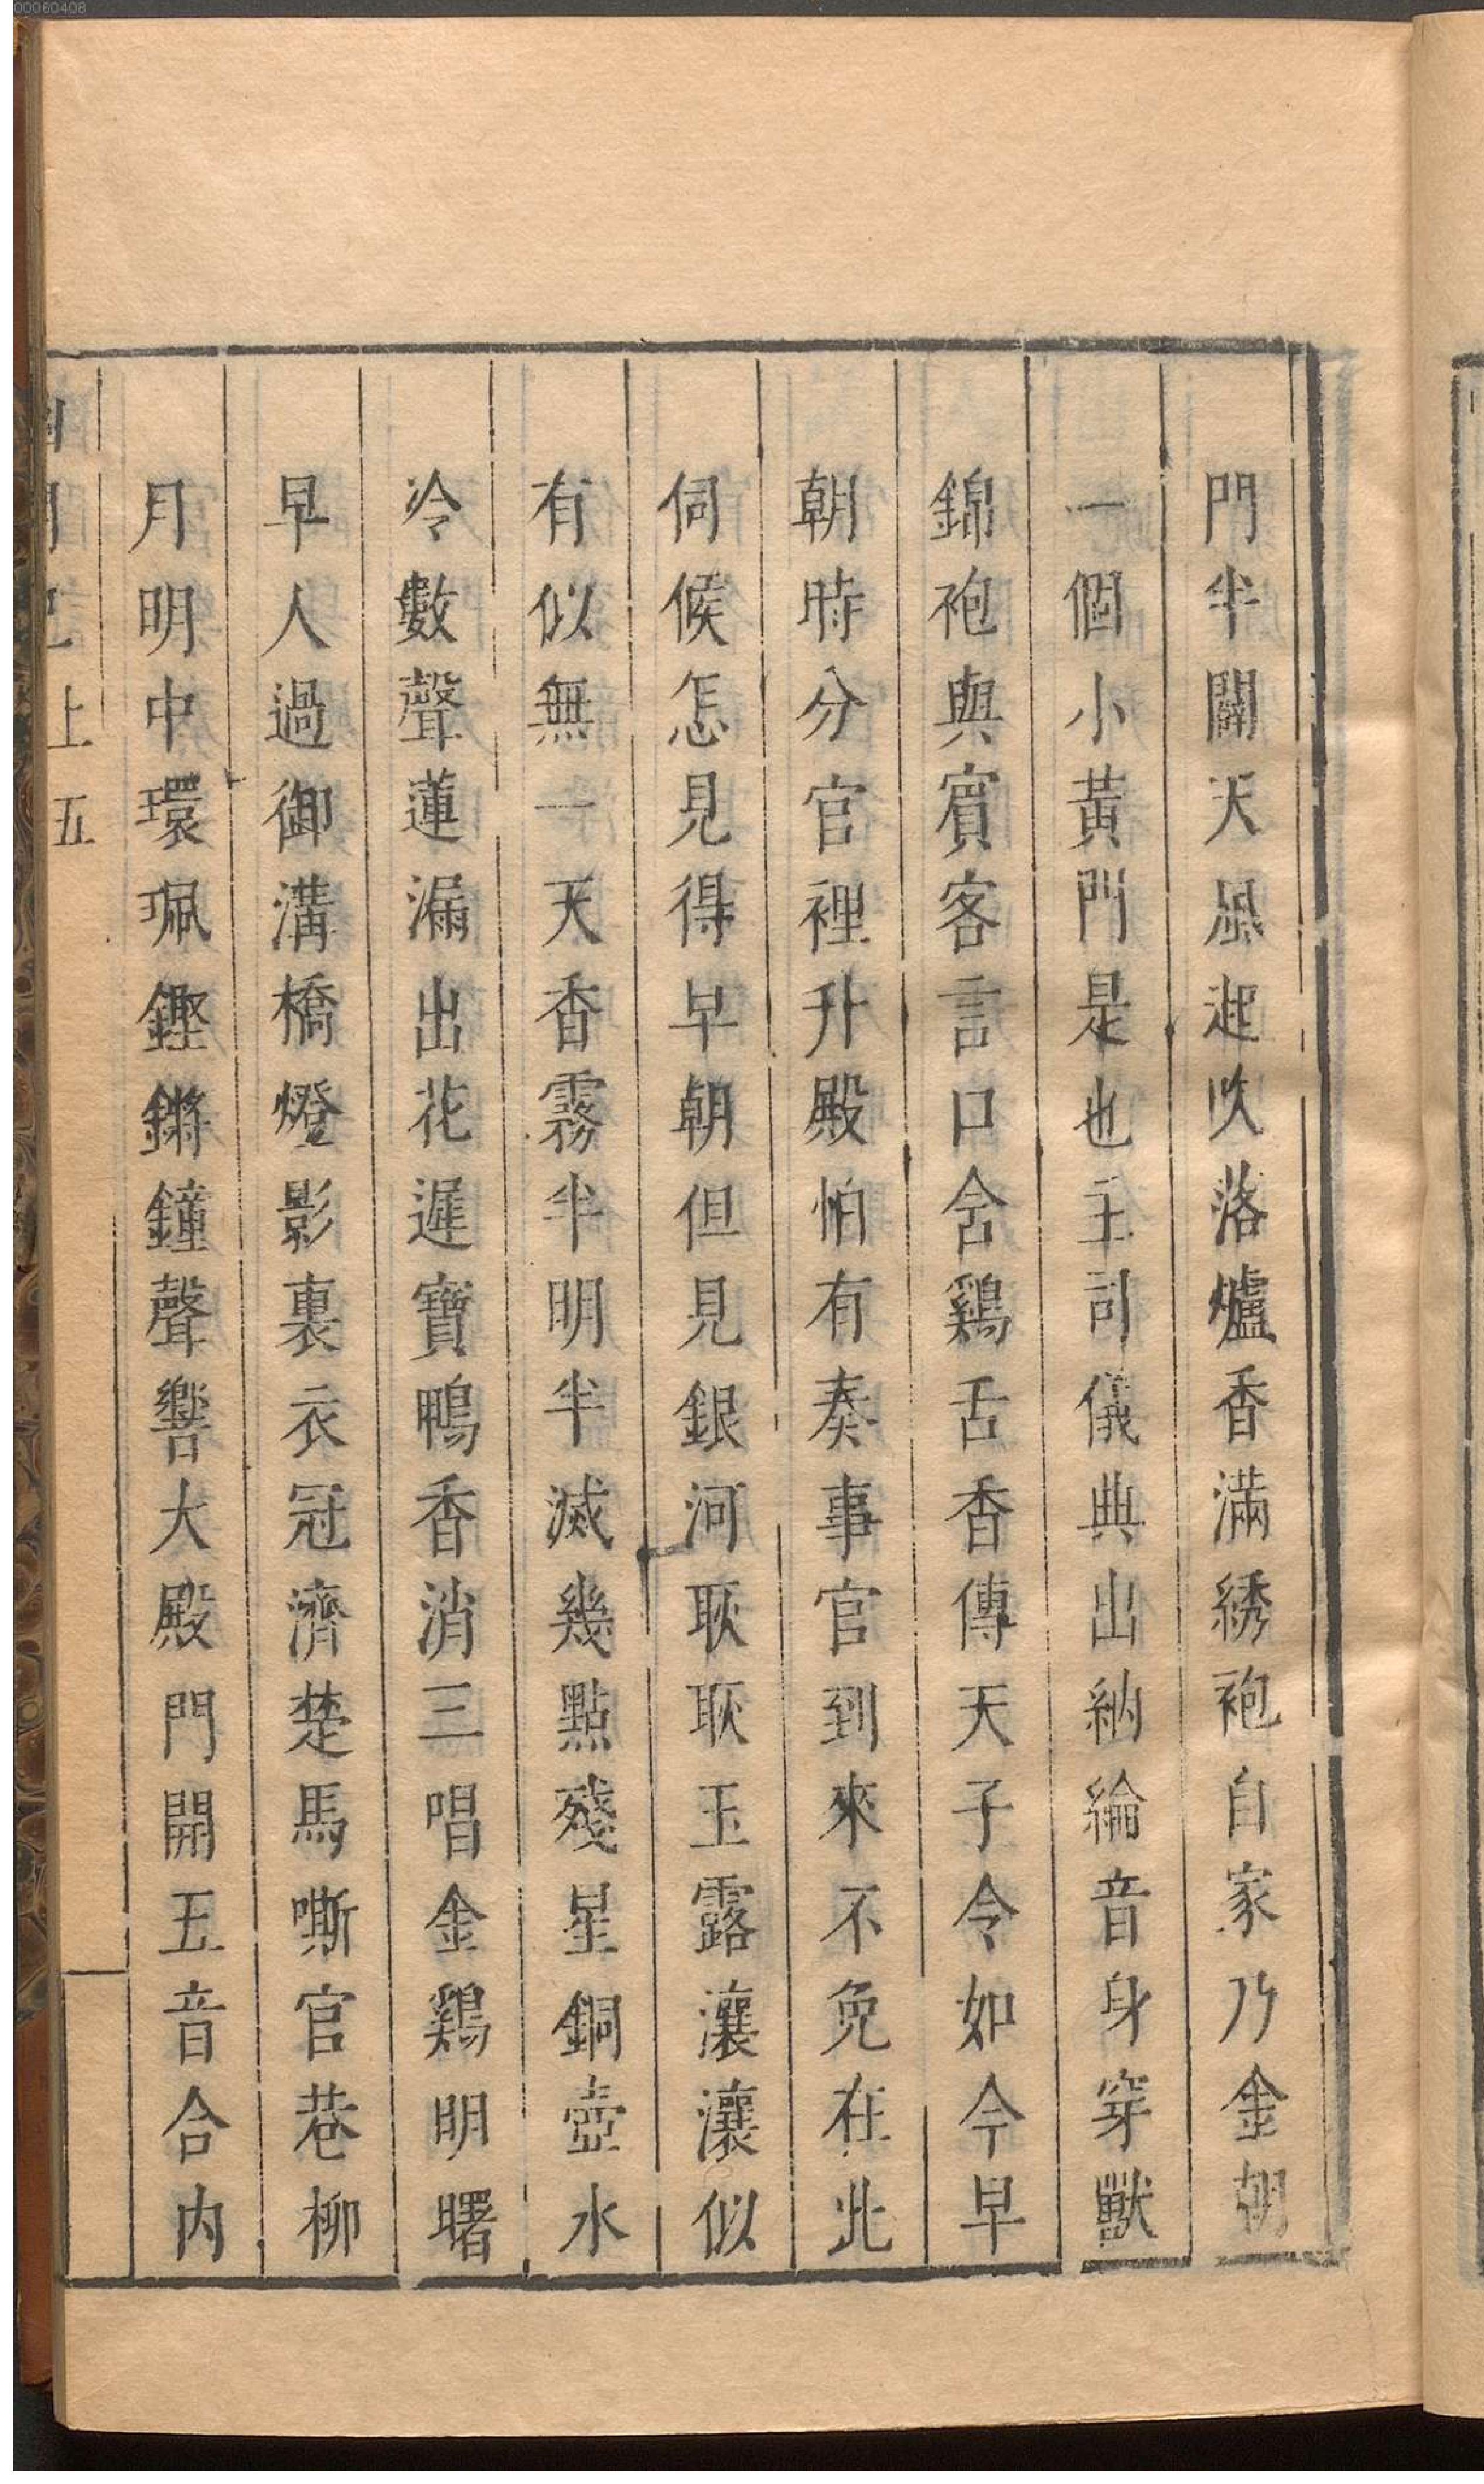 門半闢天風起吹落爐香滿綉袍自家乃金朝
一個小黃門是也主司儀典出納綸音身穿獸
錦袍與賓客言口含鷄舌香傳天子令如今早
朝時分官裡升殿怕有奏事官到來不免在此
伺候怎見得早朝但見銀河耿耿玉露瀼瀼似
有似無一天香霧半明半滅幾點殘星銅壺水
冷數聲蓮漏出花遲寶鴨香消三唱金鷄明曙
早人過御溝橋燈影裏衣冠濟楚馬嘶官巷柳
月明中環珮鏗鏘鐘聲響大殿門開五音合內
上 五
00060408